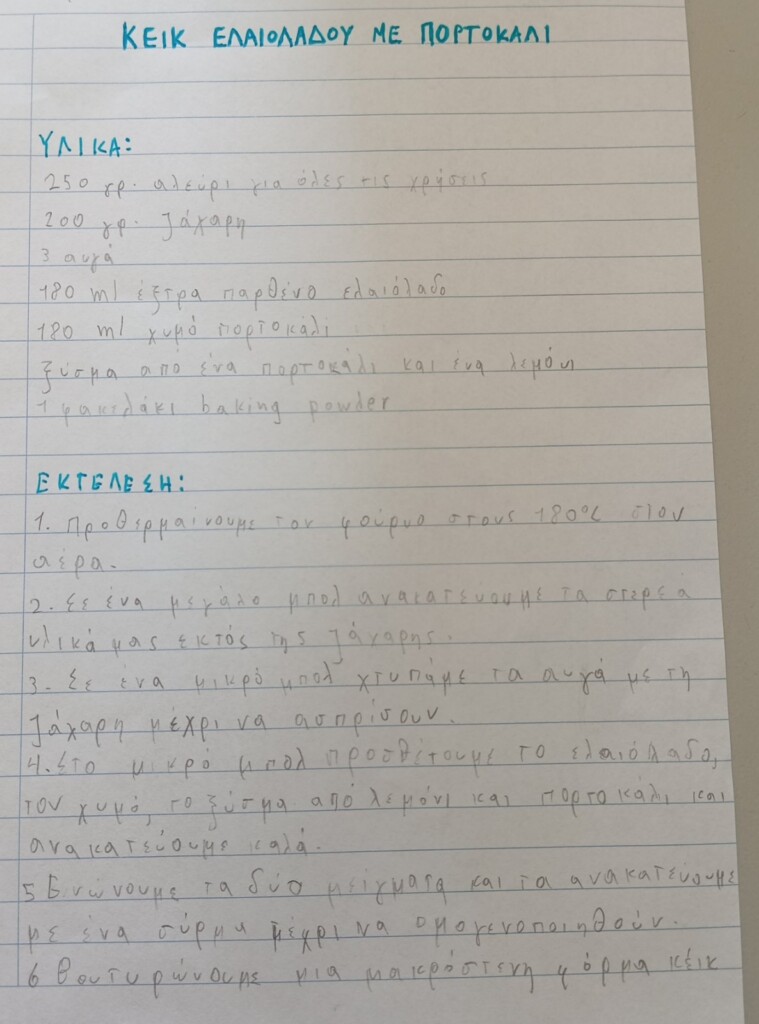 ΚΕΙΚ ΕΛΑΙΟΛΑΔΟΥ ΜΕ ΠΟΡΤΟΚΑΛΙ
ΥΛΙΚΑ:
250 γρ. αλεύρι για όλες τις χρήσεις
200 γρ. ζάχαρη
3 αυγά
180 ml έξτρα παρθένο ελαιόλαδο
180 ml χυμό πορτοκάλι
ξύσμα από ένα πορτοκάλι και ένα λεμόνι
1 φακελάκι baking powder
ΕΚΤΕΛΕΣΗ:
1. Προθερμαίνουμε τον φούρνο στους 180°C στον
αέρα.
2. Σε ένα μεγάλο μπολ ανακατεύουμε τα στερεά
υλικά μας εκτός της ζάχαρης.
3. Σε ένα μικρό μπολ χτυπάμε τα αυγά με τη
ζάχαρη μέχρι να ασπρίσουν.
4. Στο μικρό μπολ προσθέτουμε το ελαιόλαδο,
τον χυμό, το ξύσμα από λεμόνι και πορτοκάλι και
ανακατεύουμε καλά.
5 Ενώνουμε τα δύο μείγματα και τα ανακατεύουμε
με ένα σύρμα μέχρι να ομογενοποιηθούν.
6 Βουτυρώνουμε μια μακρόστενη φόρμα κέικ